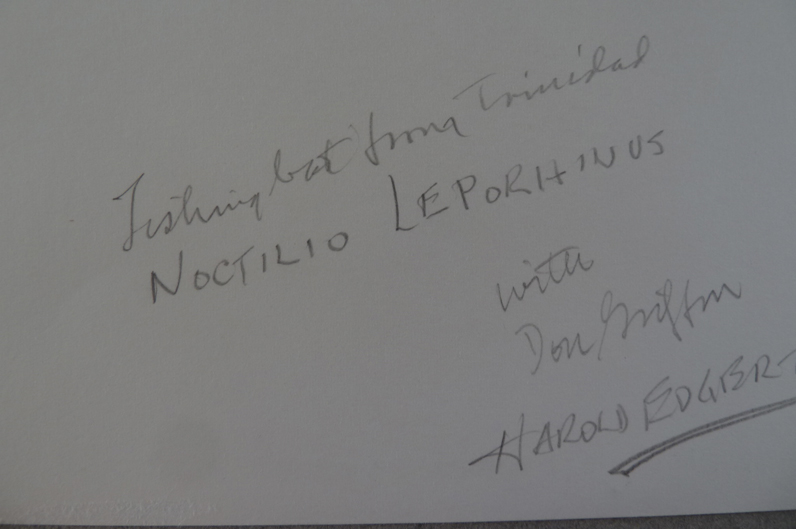 Fishing bat from Trinidad
NOCTILIO LEPORHINUS
with
Don Griffin
HAROLD EDGERT